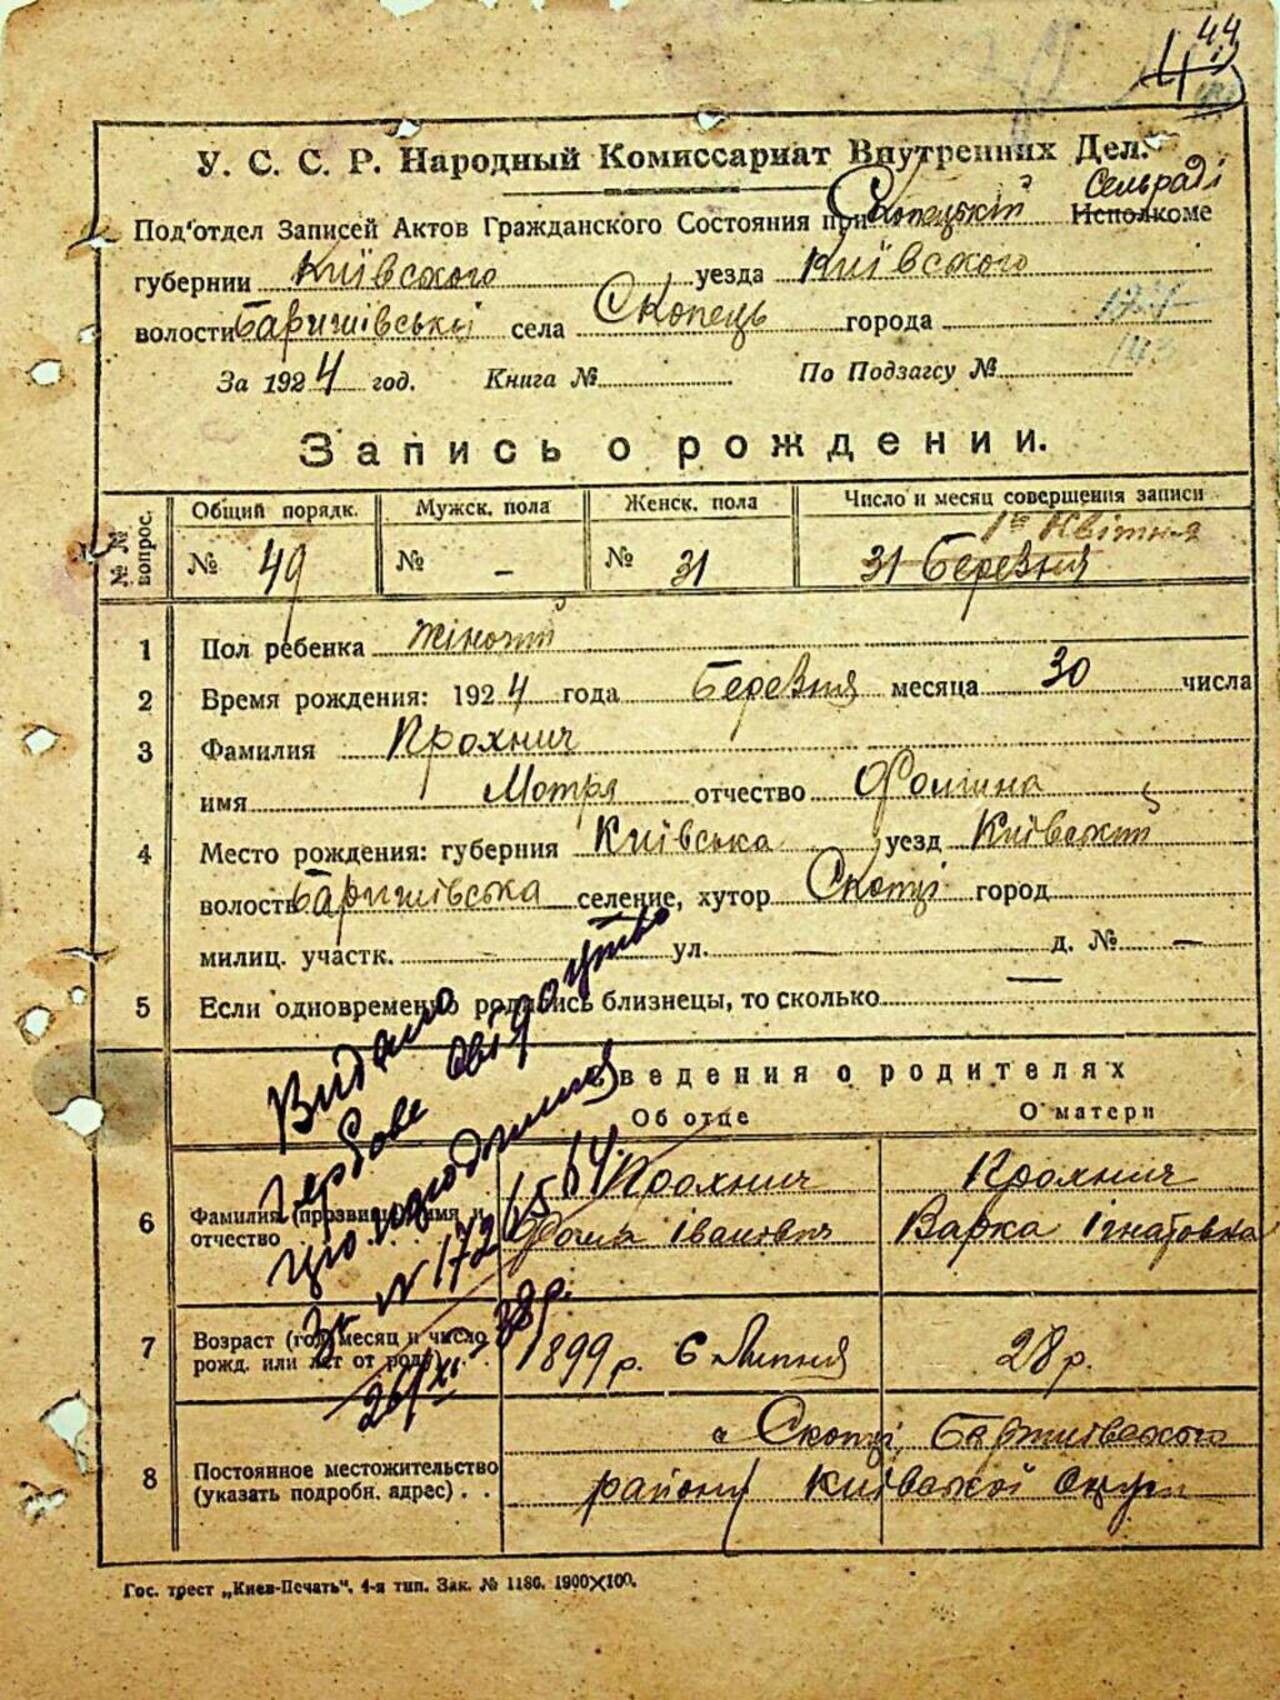 44
У. С. С. Р. Народный Комиссариат Внутренних Дел.
Сельраді
Под'отдел Записей Актов Гражданского Состояния при Скопецькій Исполкоме
губернии Київского уезда Київского
волости Баришівської села Скопець города
За 1924 год. Книга № По Подзагсу №
Запись о рождении.
№ № вопрос. Общий порядк. Мужск. пола Женск. пола Число и месяц совершения записи
1го Квітня
№ 49 № – № 31 31 Березня
1 Пол ребенка Жіночій
2 Время рождения: 1924 года Березня месяца 30 числа
3 Фамилия Прохнич
имя Мотря отчество Фомина
4 Место рождения: губерния Київська уезд Київский
волость Баришівська селение, хутор Скопці город
милиц. участк. — ул. — д. № —
5 Если одновременно родились близнецы, то сколько —
Видано
Гербове свідоцтво
народження
за № 172
26/XI 38р.
Сведения о родителях
Об отце О матери
6 Фамилия (прозвище) имя и отчество Прохнич Фома Іванович Прохнич Варка Ігнатовна
7 Возраст (год, месяц и число рожд. или лет от роду) . . 1899 р. 6 Липня 28 р.
8 Постоянное местожительство (указать подробн. адрес) . . с Скопці, Баришівского
району Київскої Округи
Гос. трест „Киев-Печать“. 4-я тип. Зак. № 1186. 1900×100.